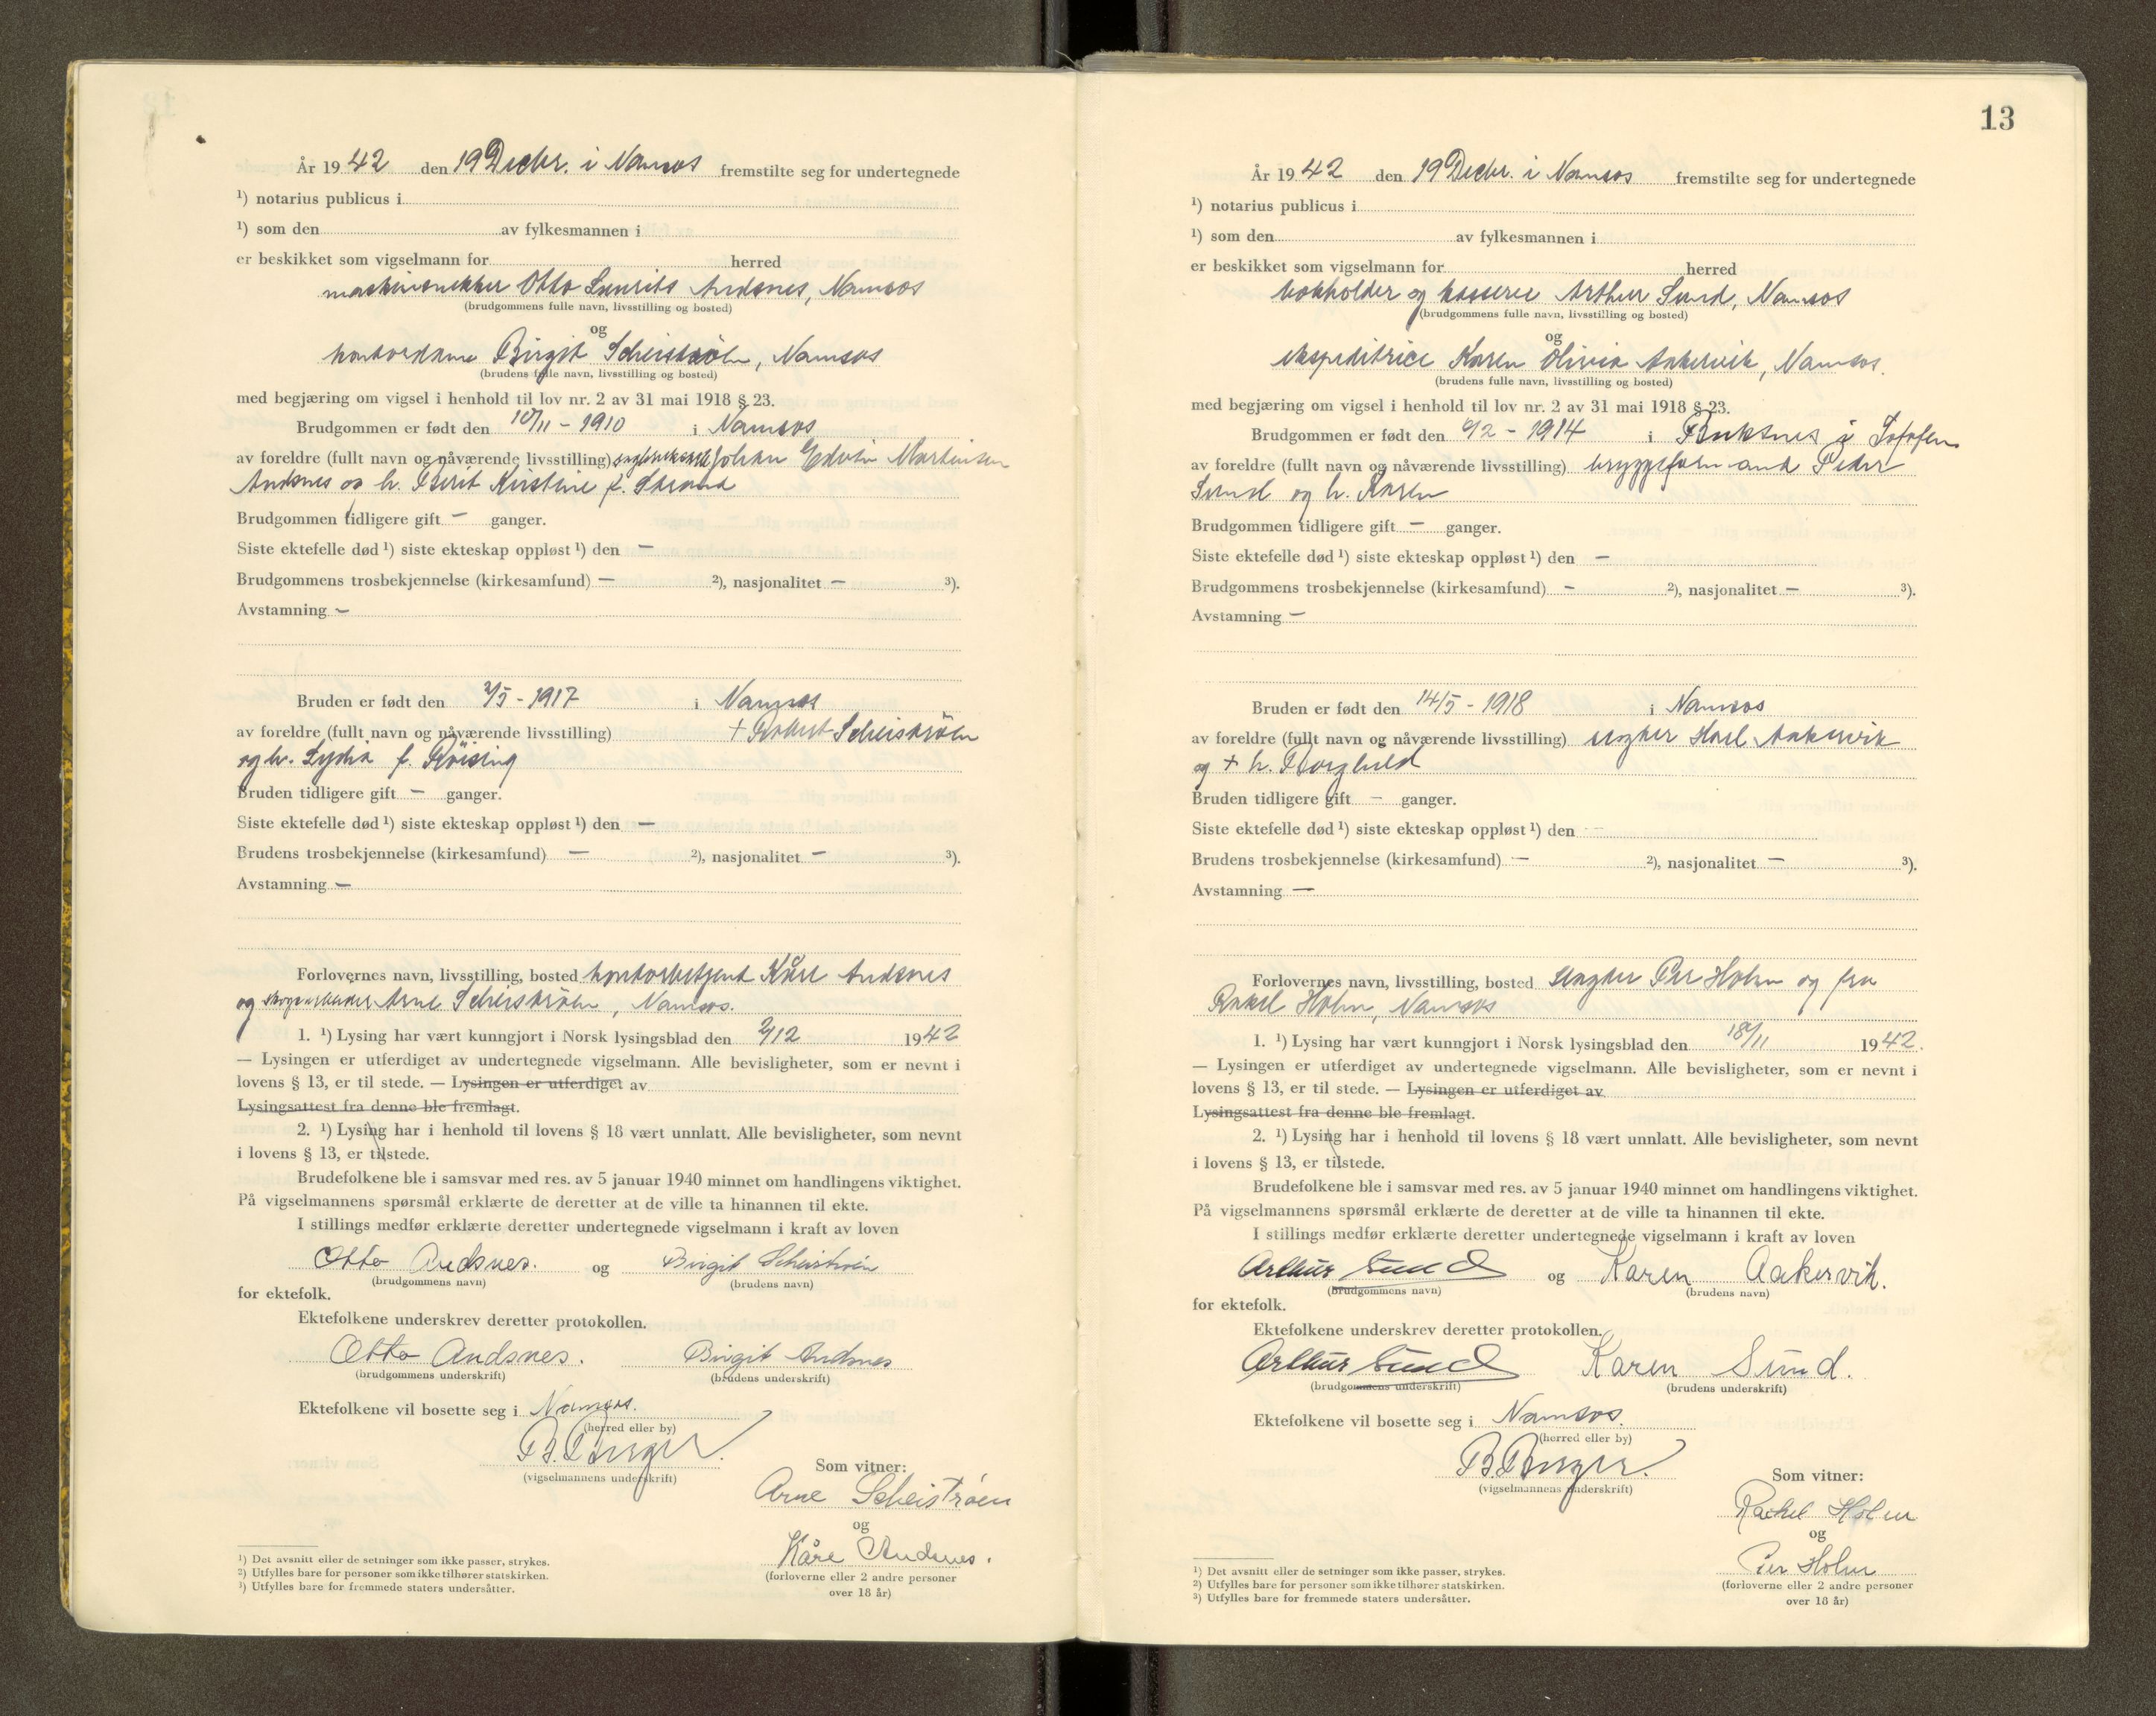 År 1942 den 19 Decbr. i Namsos fremstilte seg for undertegnede
¹) notarius publicus i
¹) som den av fylkesmannen i
er beskikket som vigselmann for herred
maskinsnekker Otto Laurits Andsnes, Namsos
(brudgommens fulle navn, livsstilling og bosted)
og
kontordame Birgit Scheistrøen, Namsos
(brudens fulle navn, livsstilling og bosted)
med begjæring om vigsel i henhold til lov nr. 2 av 31 mai 1918 § 23.
Brudgommen er født den 10/11 - 1910 i Namsos
av foreldre (fullt navn og nåværende livsstilling) Johan Edvin Martinsen
Andsnes og h. Berit Kirstine f. Strand
Brudgommen tidligere gift - ganger.
Siste ektefelle død ¹) siste ekteskap oppløst ¹) den -
Brudgommens trosbekjennelse (kirkesamfund) - ²), nasjonalitet - ³).
Avstamning -
Bruden er født den 2/5 - 1917 i Namsos
av foreldre (fullt navn og nåværende livsstilling) + Robert Scheistrøen
og h. Lydia f. Røising
Bruden tidligere gift - ganger.
Siste ektefelle død ¹) siste ekteskap oppløst ¹) den -
Brudens trosbekjennelse (kirkesamfund) - ²), nasjonalitet - ³).
Avstamning -
Forlovernes navn, livsstilling, bosted kontorbetjent Kåre Andsnes
og skogsarbeider Arne Scheistrøen, Namsos.
1. ¹) Lysing har vært kunngjort i Norsk lysingsblad den 2/12 1942
— Lysingen er utferdiget av undertegnede vigselmann. Alle bevisligheter, som er nevnt i
lovens § 13, er til stede. — Lysingen er utferdiget av
Lysingsattest fra denne ble fremlagt.
2. ¹) Lysing har i henhold til lovens § 18 vært unnlatt. Alle bevisligheter, som nevnt
i lovens § 13, er tilstede.
Brudefolkene ble i samsvar med res. av 5 januar 1940 minnet om handlingens viktighet.
På vigselmannens spørsmål erklærte de deretter at de ville ta hinannen til ekte.
I stillings medfør erklærte deretter undertegnede vigselmann i kraft av loven
Otto Andsnes. og Birgit Scheistrøen
(brudgommens navn) (brudens navn)
for ektefolk.
Ektefolkene underskrev deretter protokollen.
Otto Andsnes. Birgit Andsnes
(brudgommens underskrift) (brudens underskrift)
Ektefolkene vil bosette seg i Namsos.
(herred eller by)
(vigselmannens underskrift)
Som vitner:
Arne Scheistrøen
og
Kåre Andsnes.
(forloverne eller 2 andre personer
over 18 år)
¹) Det avsnitt eller de setninger som ikke passer, strykes.
²) Utfylles bare for personer som ikke tilhører statskirken.
³) Utfylles bare for fremmede staters undersåtter.
13
År 1942 den 19 Decbr. i Namsos fremstilte seg for undertegnede
¹) notarius publicus i
¹) som den av fylkesmannen i
er beskikket som vigselmann for herred
bokholder og kasserer Arthur Sund, Namsos
(brudgommens fulle navn, livsstilling og bosted)
og
ekspeditrice Karen Olivia Aakervik, Namsos.
(brudens fulle navn, livsstilling og bosted)
med begjæring om vigsel i henhold til lov nr. 2 av 31 mai 1918 § 23.
Brudgommen er født den 6/2 - 1914 i Buksnes i Lofoten
av foreldre (fullt navn og nåværende livsstilling) bryggeformand Peder
Sund og h. Karen
Brudgommen tidligere gift - ganger.
Siste ektefelle død ¹) siste ekteskap oppløst ¹) den -
Brudgommens trosbekjennelse (kirkesamfund) - ²), nasjonalitet - ³).
Avstamning -
Bruden er født den 14/5 - 1918 i Namsos
av foreldre (fullt navn og nåværende livsstilling) Aakervik
og + h. Borghild
Bruden tidligere gift - ganger.
Siste ektefelle død ¹) siste ekteskap oppløst ¹) den -
Brudens trosbekjennelse (kirkesamfund) - ²), nasjonalitet - ³).
Avstamning -
Forlovernes navn, livsstilling, bosted Per Holm og fru
Rakel Holm, Namsos
1. ¹) Lysing har vært kunngjort i Norsk lysingsblad den 18/11 1942.
— Lysingen er utferdiget av undertegnede vigselmann. Alle bevisligheter, som er nevnt i
lovens § 13, er til stede. — Lysingen er utferdiget av
Lysingsattest fra denne ble fremlagt.
2. ¹) Lysing har i henhold til lovens § 18 vært unnlatt. Alle bevisligheter, som nevnt
i lovens § 13, er tilstede.
Brudefolkene ble i samsvar med res. av 5 januar 1940 minnet om handlingens viktighet.
På vigselmannens spørsmål erklærte de deretter at de ville ta hinannen til ekte.
I stillings medfør erklærte deretter undertegnede vigselmann i kraft av loven
Arthur Sund og Karen Aakervik.
(brudgommens navn) (brudens navn)
for ektefolk.
Ektefolkene underskrev deretter protokollen.
Arthur Sund Karen Sund.
(brudgommens underskrift) (brudens underskrift)
Ektefolkene vil bosette seg i Namsos.
(herred eller by)
(vigselmannens underskrift)
Som vitner:
Rachel Holm
og
Per Holm
(forloverne eller 2 andre personer
over 18 år)
¹) Det avsnitt eller de setninger som ikke passer, strykes.
²) Utfylles bare for personer som ikke tilhører statskirken.
³) Utfylles bare for fremmede staters undersåtter.